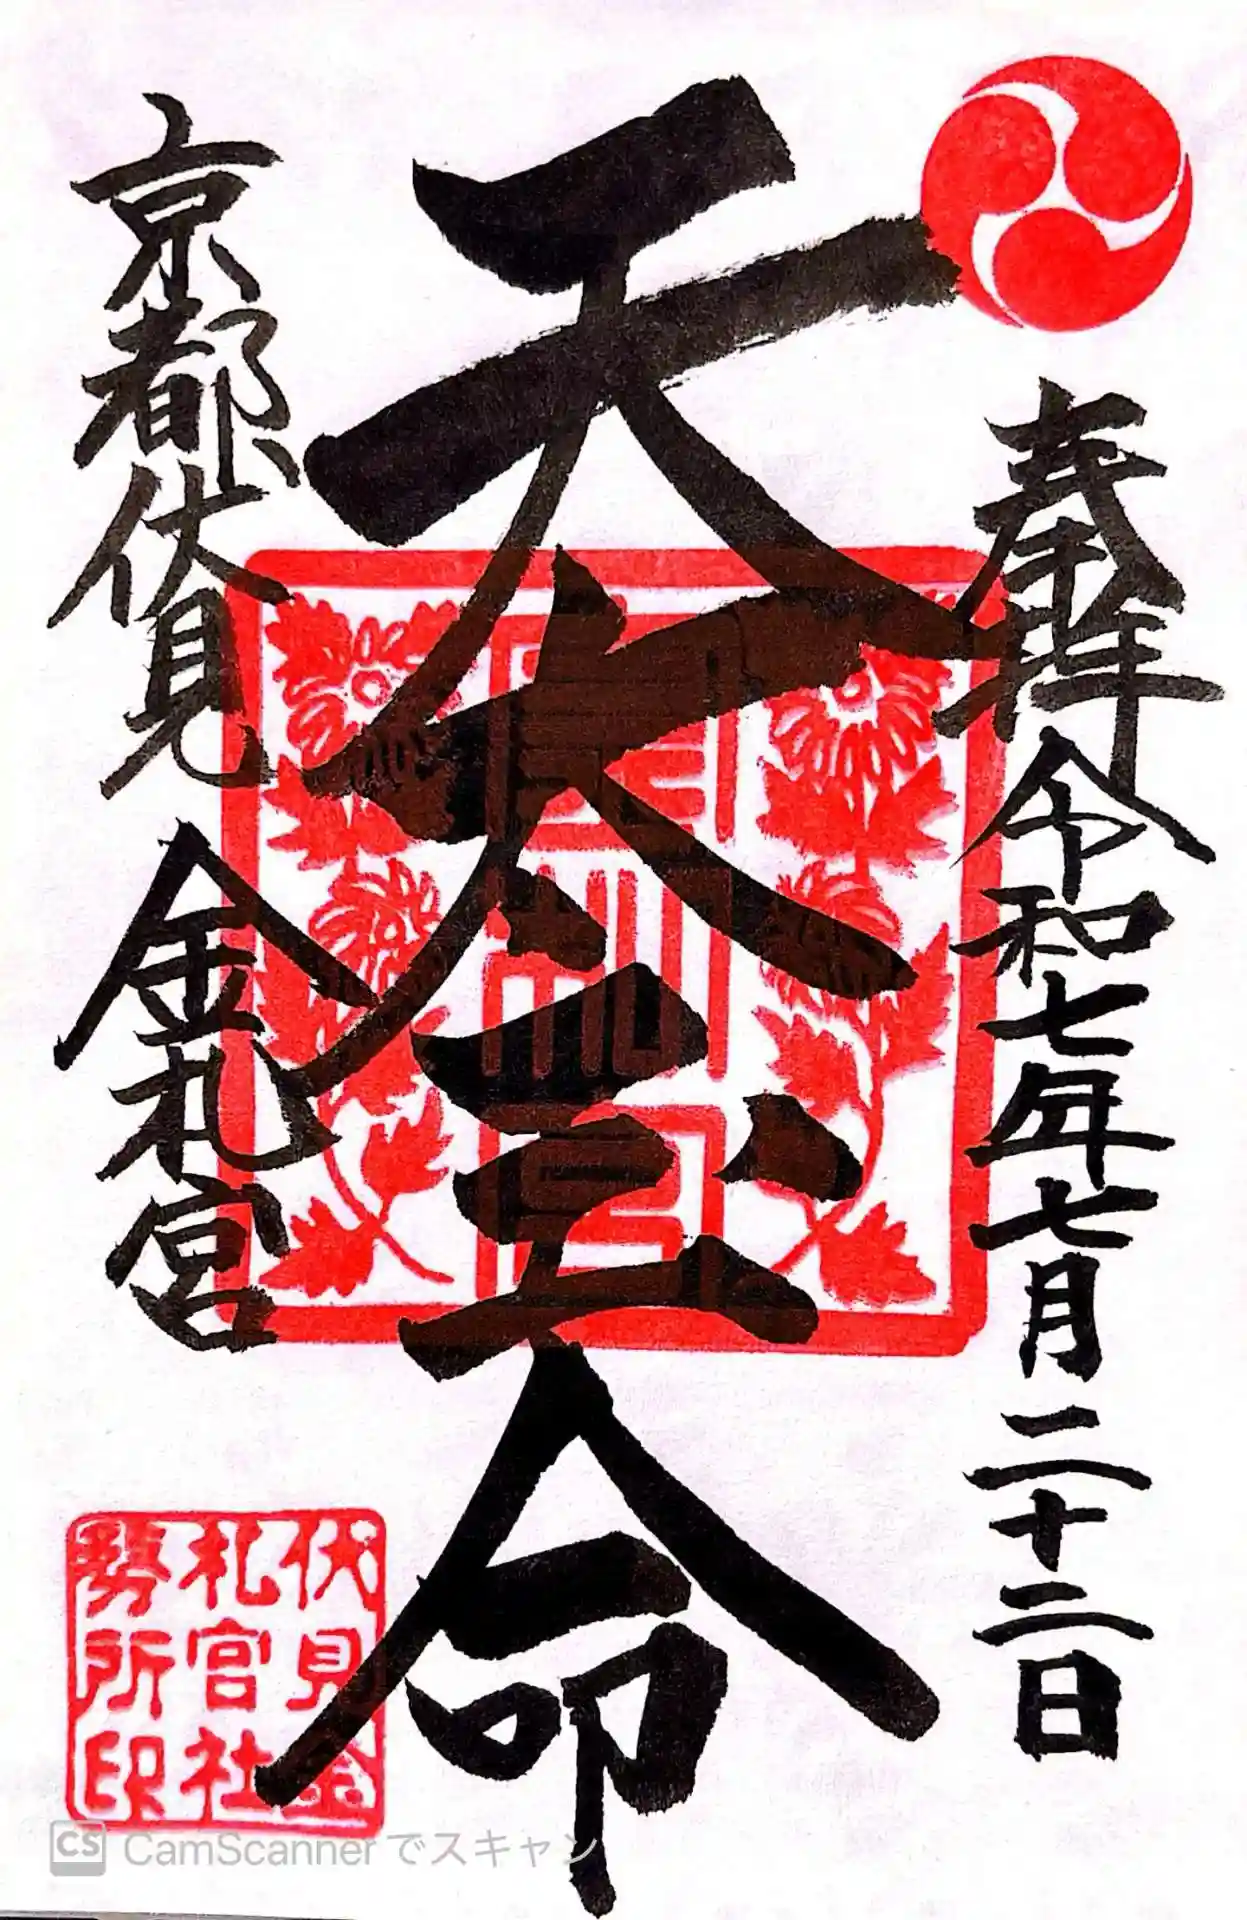 奉拝 令和七年七月二十二日
天太玉命
京都伏見 金札宮
伏見金
札宮社
務所印
CS CamScannerでスキャン